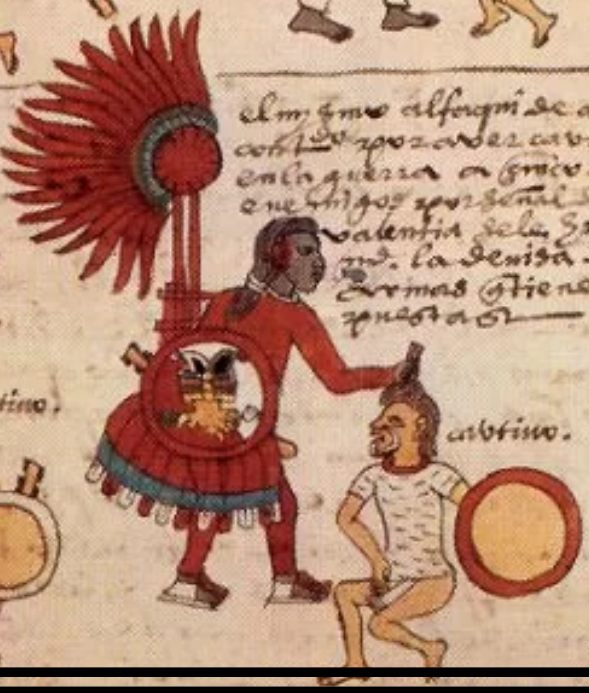 el mysmo alfaqui de
por aver cau
en la guerra a çinco
enemigos por señal
valentia
md. la devisa
armas q tiene
puestas
tiuo.
cavtiuo.